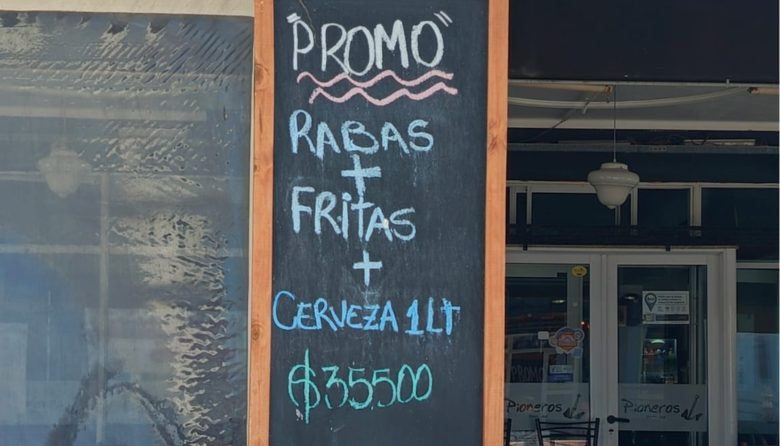 "PROMO"
RABAS
+
FRITAS
+
CERVEZA 1LT
$35500
Pioneros
Pioneros